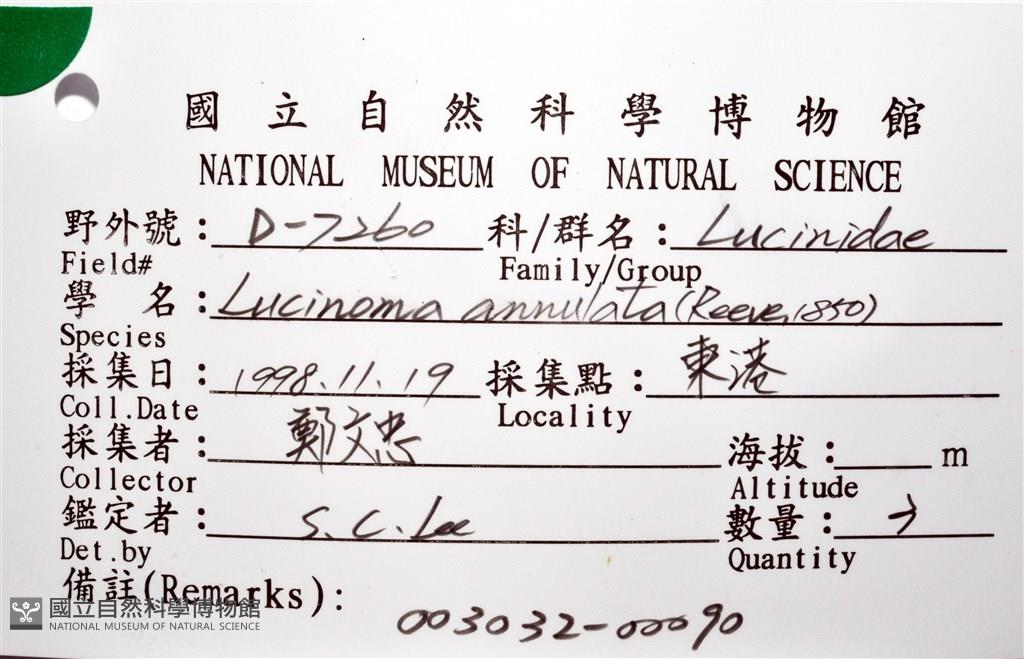 國立自然科學博物館
NATIONAL MUSEUM OF NATURAL SCIENCE
野外號：D-7260 科/群名：Lucinidae
Field# Family/Group
學名：Lucinoma annulata (Reeve, 1850)
Species
採集日：1998.11.19 採集點：東港
Coll.Date Locality
採集者：鄭文忠 海拔：m
Collector Altitude
鑑定者：S.C.Lee 數量：
Det.by Quantity
備註(Remarks)：
003032-00090
國立自然科學博物館
NATIONAL MUSEUM OF NATURAL SCIENCE